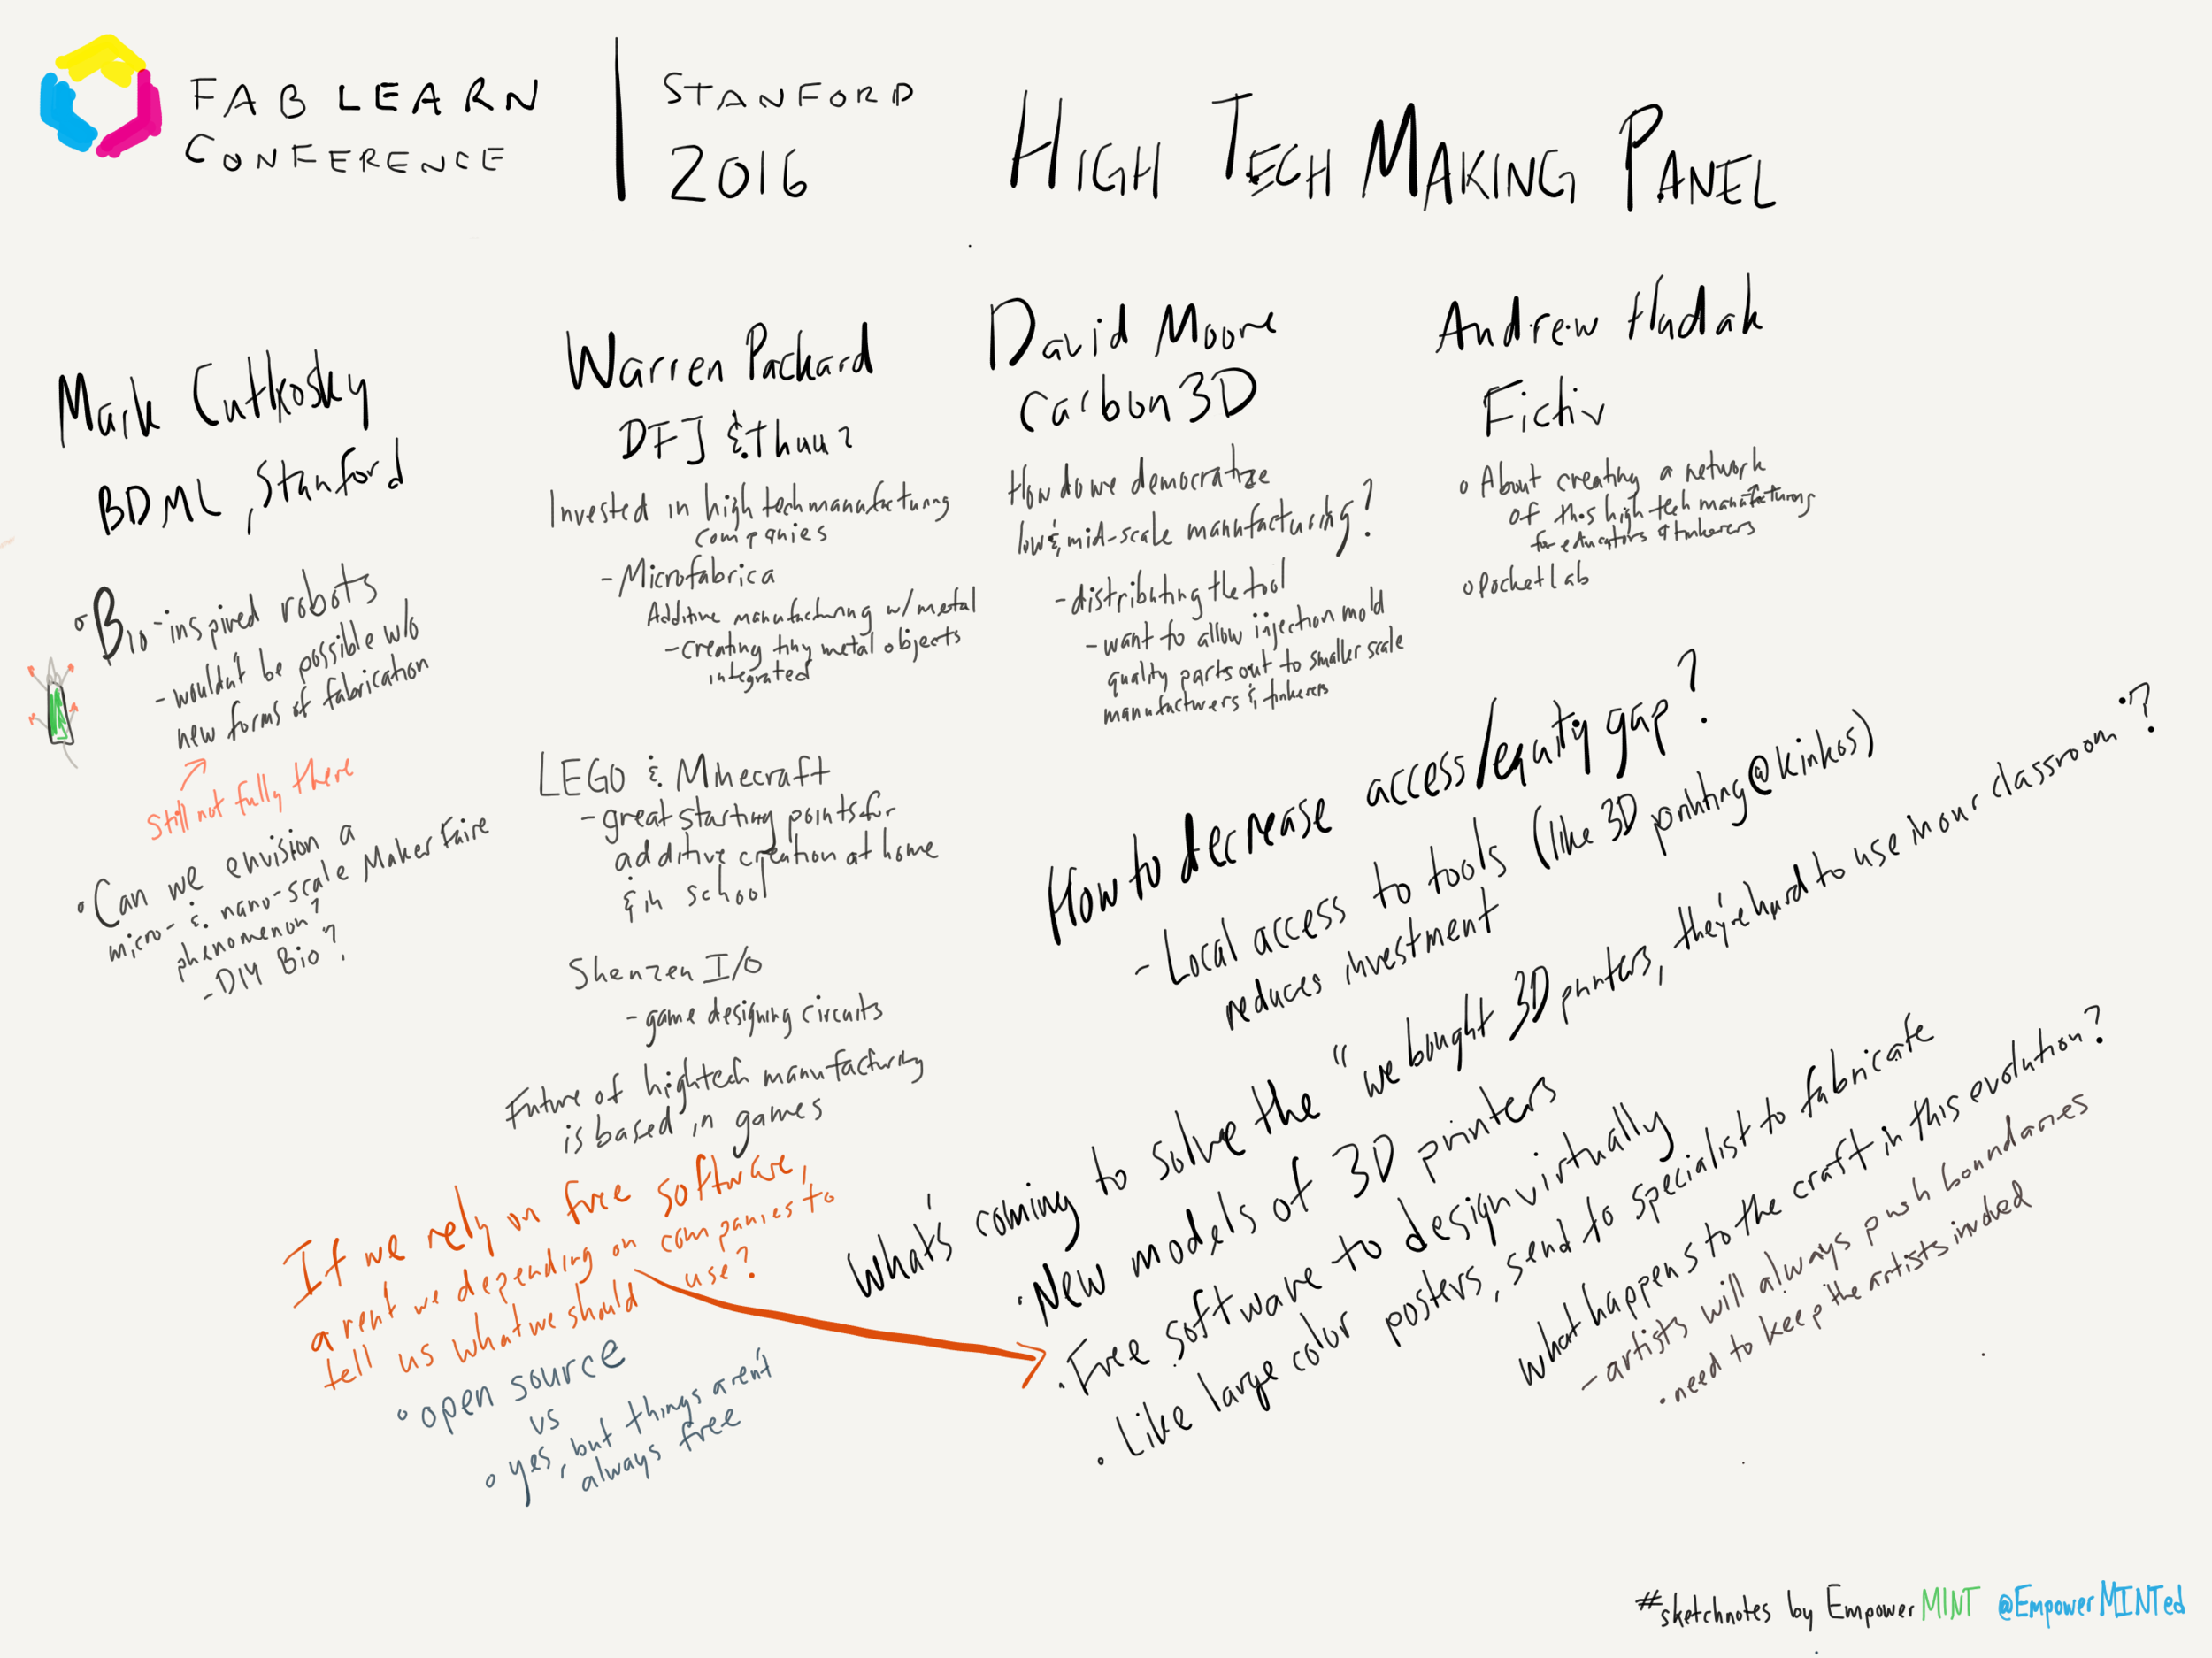 FAB LEARN
CONFERENCE
STANFORD
2016
HIGH TECH MAKING PANEL
Mark Cutkosky
BDML, Stanford
Bio-inspired robots
- wouldn't be possible w/o
new forms of fabrication
still not fully there
Can we envision a
micro- & nano-scale Maker Faire
phenomenon?
- DIY Bio?
Warren Packard
DFJ & Thuuz
Invested in high tech manufacturing
companies
- Microfabrica
Additive manufacturing w/ metal
- creating tiny metal objects
integrated
LEGO & Minecraft
- great starting points for
additive creation at home
& in school
Shenzen I/O
- game designing circuits
Future of hightech manufacturing
is based in games
If we rely on free software,
arent we depending on companies to
tell us what we should use?
open source
vs
yes, but things aren't
always free
David Moore
Carbon 3D
How do we democratize
low & mid-scale manufacturing?
- distributing the tool
- want to allow injection mold
quality parts out to smaller scale
manufacturers & tinkerers
Andrew Hudak
Fictiv
About creating a network
of this high tech manufacturing
for educators & tinkerers
Pocketlab
How to decrease access/equity gap?
- Local access to tools (like 3D printing @ kinkos)
reduces investment
What's coming to solve the "we bought 3D printers, they're hard to use in our classroom"?
· New models of 3D printers
· Free software to design virtually
· Like large color posters, send to specialist to fabricate
what happens to the craft in this evolution?
- artists will always push boundaries
· need to keep the artists involved
#sketchnotes by EmpowerMINT @EmpowerMINTed